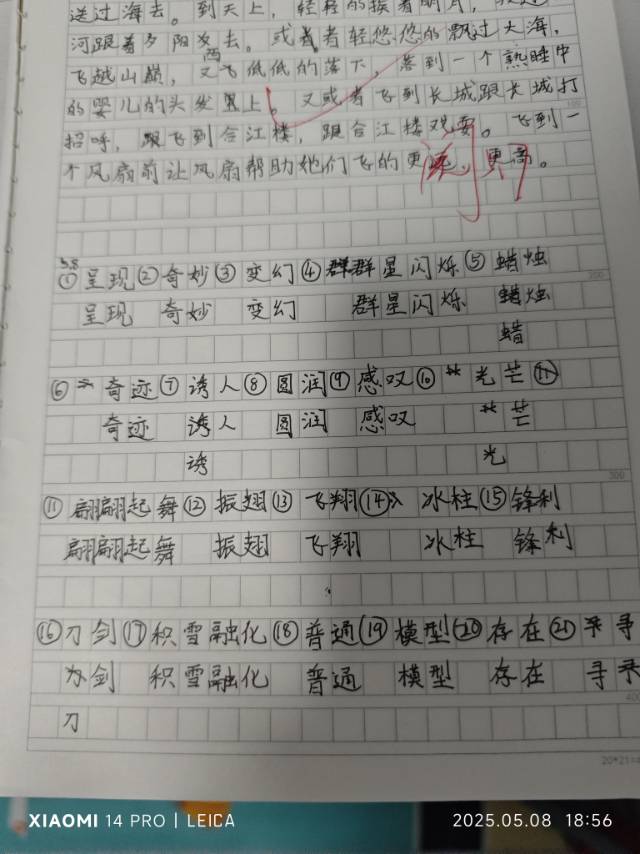 送过海去。到天上,轻轻的挨着明月,
河跟着夕阳西去。或者者轻悠悠的飘过大海,
飞越山巅,又飞低低的落下,落到一个熟睡中
的婴儿的头发里上。又或者飞到长城跟长城打
招呼,跟飞到合江楼,跟合江楼观要。飞到一
个风扇前让风扇帮助她们飞的更远,更高。
①呈现②奇妙③变幻④群群星闪烁⑤蜡烛
呈现 奇妙 变幻 群星闪烁 蜡烛
蜡
⑥奇迹⑦诱人⑧圆润⑨感叹⑩光芒⑪
奇迹 诱人 圆润 感叹 芒
诱 光
⑪翩翩起舞⑫振翅⑬飞翔⑭冰柱⑮锋利
翩翩起舞 振翅 飞翔 冰柱 锋利
⑯刀剑⑰积雪融化⑱普通⑲模型⑳存在㉑寻
办剑 积雪融化 普通 模型 存在 寻
刀
400
20*21=
XIAOMI 14 PRO | LEICA 2025.05.08 18:56